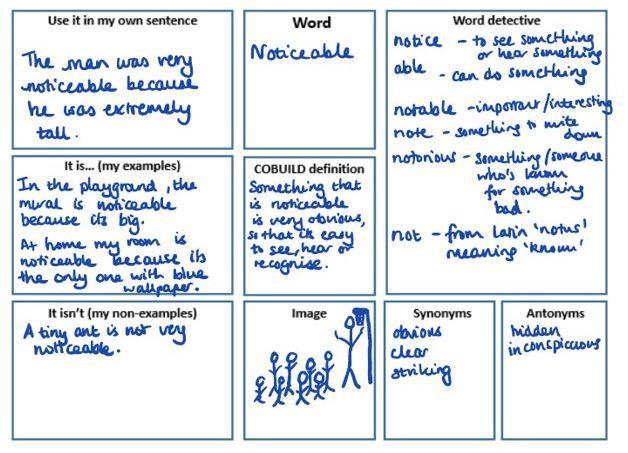 Use it in my own sentence
The man was very
noticeable because
he was extremely
tall.
Word
Noticeable
Word detective
notice - to see something
or hear something
able - can do something
notable - important/interesting
note - something to write
down
notorious - something/someone
who's known
for something
bad.
not - from Latin 'notus'
meaning 'known'
It is... (my examples)
In the playground, the
mural is noticeable
because its big.
At home my room is
noticeable because its
the only one with blue
wallpaper.
COBUILD definition
Something that
is noticeable
is very obvious,
so that it's easy
to see, hear or
recognise.
It isn't (my non-examples)
A tiny ant is not very
noticeable.
Image
Synonyms
obvious
clear
striking
Antonyms
hidden
inconspicuous